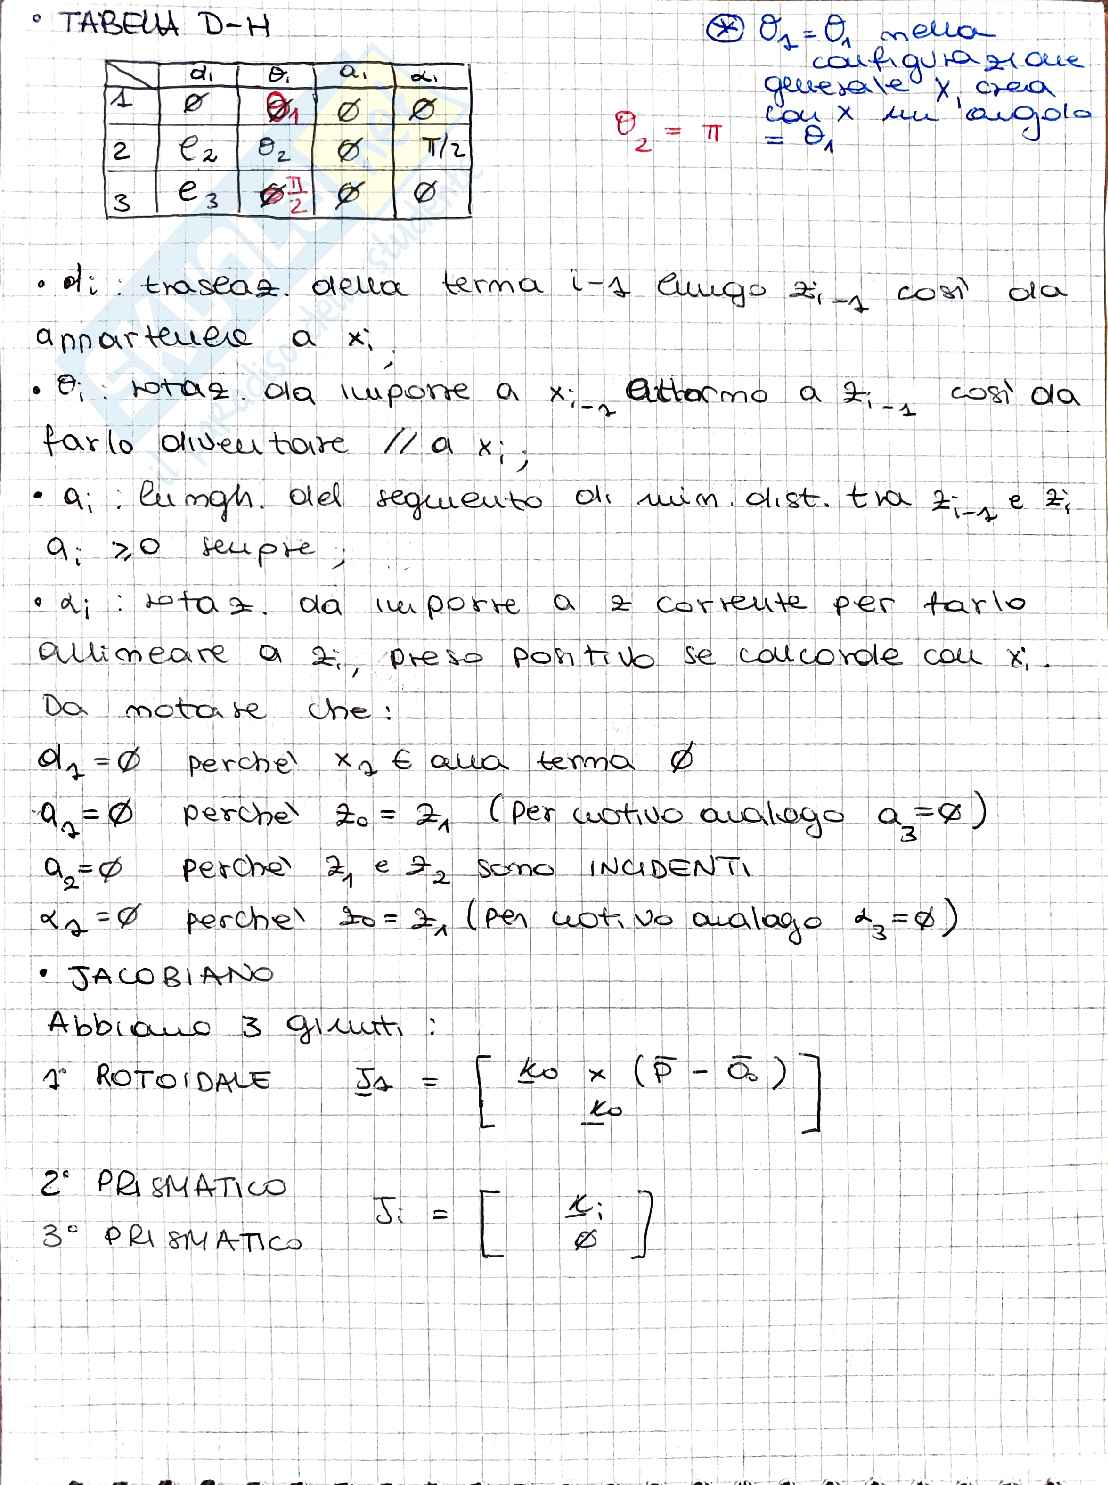 • TABELLA D-H
⊛ θ1 = θ1 nella
configurazione
generale x1 crea
con x un angolo
= θ1
θ2 = π
di θi ai αi
1 ∅ θ1 ∅ ∅
2 l2 θ2 ∅ π/2
3 l3 π/2 ∅ ∅
• di : traslaz. della terna i-1 lungo zi-1 così da
appartenere a xi ;
• θi : rotaz. da imporre a xi-1 attorno a zi-1 così da
farlo diventare // a xi ;
• ai : lungh. del segmento di min. dist. tra zi-1 e zi
ai ≥ 0 sempre ;
• αi : rotaz. da imporre a z corrente per farlo
allineare a zi, preso positivo se concorde con xi.
Da notare che :
d1 = ∅ perchè x1 ∈ alla terna ∅
a1 = ∅ perchè z0 = z1 (per motivo analogo a3 = ∅)
a2 = ∅ perchè z1 e z2 sono INCIDENTI
α1 = ∅ perchè z0 = z1 (per motivo analogo α3 = ∅)
• JACOBIANO
Abbiamo 3 giunti :
1° ROTOIDALE J1 = [ k0 × (p̄ - ō0)
k0 ]
2° PRISMATICO
Ji = [ ki
∅ ]
3° PRISMATICO